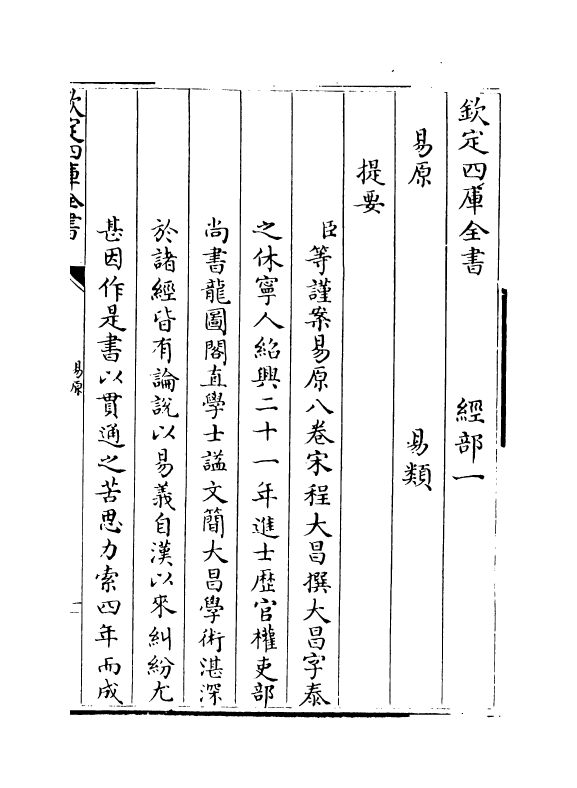 欽定四庫全書　經部一
易原　易類
提要
臣等謹案易原八卷宋程大昌撰大昌字泰
之休寧人紹興二十一年進士歷官權吏部
尚書龍圖閣直學士諡文簡大昌學術湛深
於諸經皆有論說以易義自漢以來糾紛尤
甚因作是書以貫通之苦思力索四年而成
欽定四庫全書
易原
一